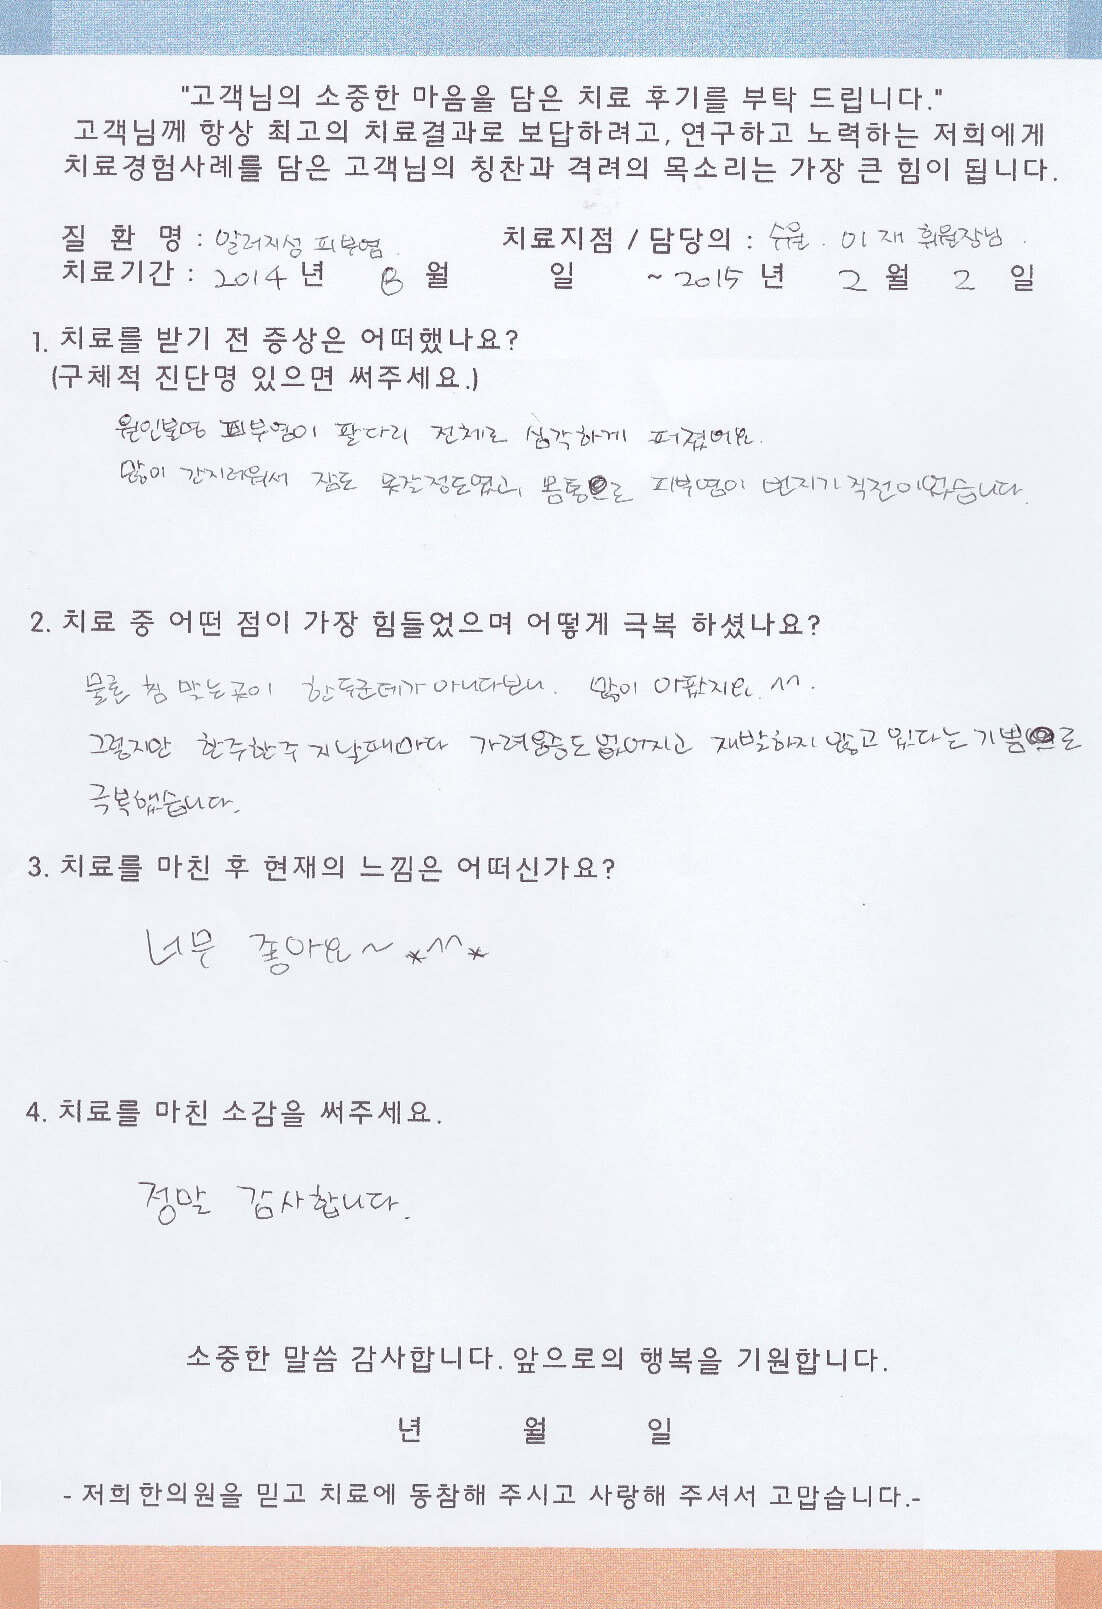 "고객님의 소중한 마음을 담은 치료 후기를 부탁 드립니다."
고객님께 항상 최고의 치료결과로 보답하려고, 연구하고 노력하는 저희에게
치료경험사례를 담은 고객님의 칭찬과 격려의 목소리는 가장 큰 힘이 됩니다.
질 환 명 : 알러지성 피부염. 치료지점 / 담당의 : 수원. 이재휘원장님.
치료기간 : 2014 년 8 월 일 ~ 2015 년 2 월 2 일
1. 치료를 받기 전 증상은 어떠했나요?
(구체적 진단명 있으면 써주세요.)
원인불명 피부염이 팔다리 전체로 심각하게 퍼졌어요.
많이 간지러워서 잠도 못잘정도였고, 몸통으로 피부염이 번지기 직전이었습니다.
2. 치료 중 어떤 점이 가장 힘들었으며 어떻게 극복 하셨나요?
물론 침 맞는곳이 한두군데가 아니다보니. 많이 아팠지요. ^^.
그렇지만 한주한주 지날때마다 가려움증도 없어지고 재발하지 않고 있다는 기쁨으로
극복했습니다.
3. 치료를 마친 후 현재의 느낌은 어떠신가요?
너무 좋아요~ *^^*
4. 치료를 마친 소감을 써주세요.
정말 감사합니다.
소중한 말씀 감사합니다. 앞으로의 행복을 기원합니다.
년 월 일
- 저희 한의원을 믿고 치료에 동참해 주시고 사랑해 주셔서 고맙습니다.-